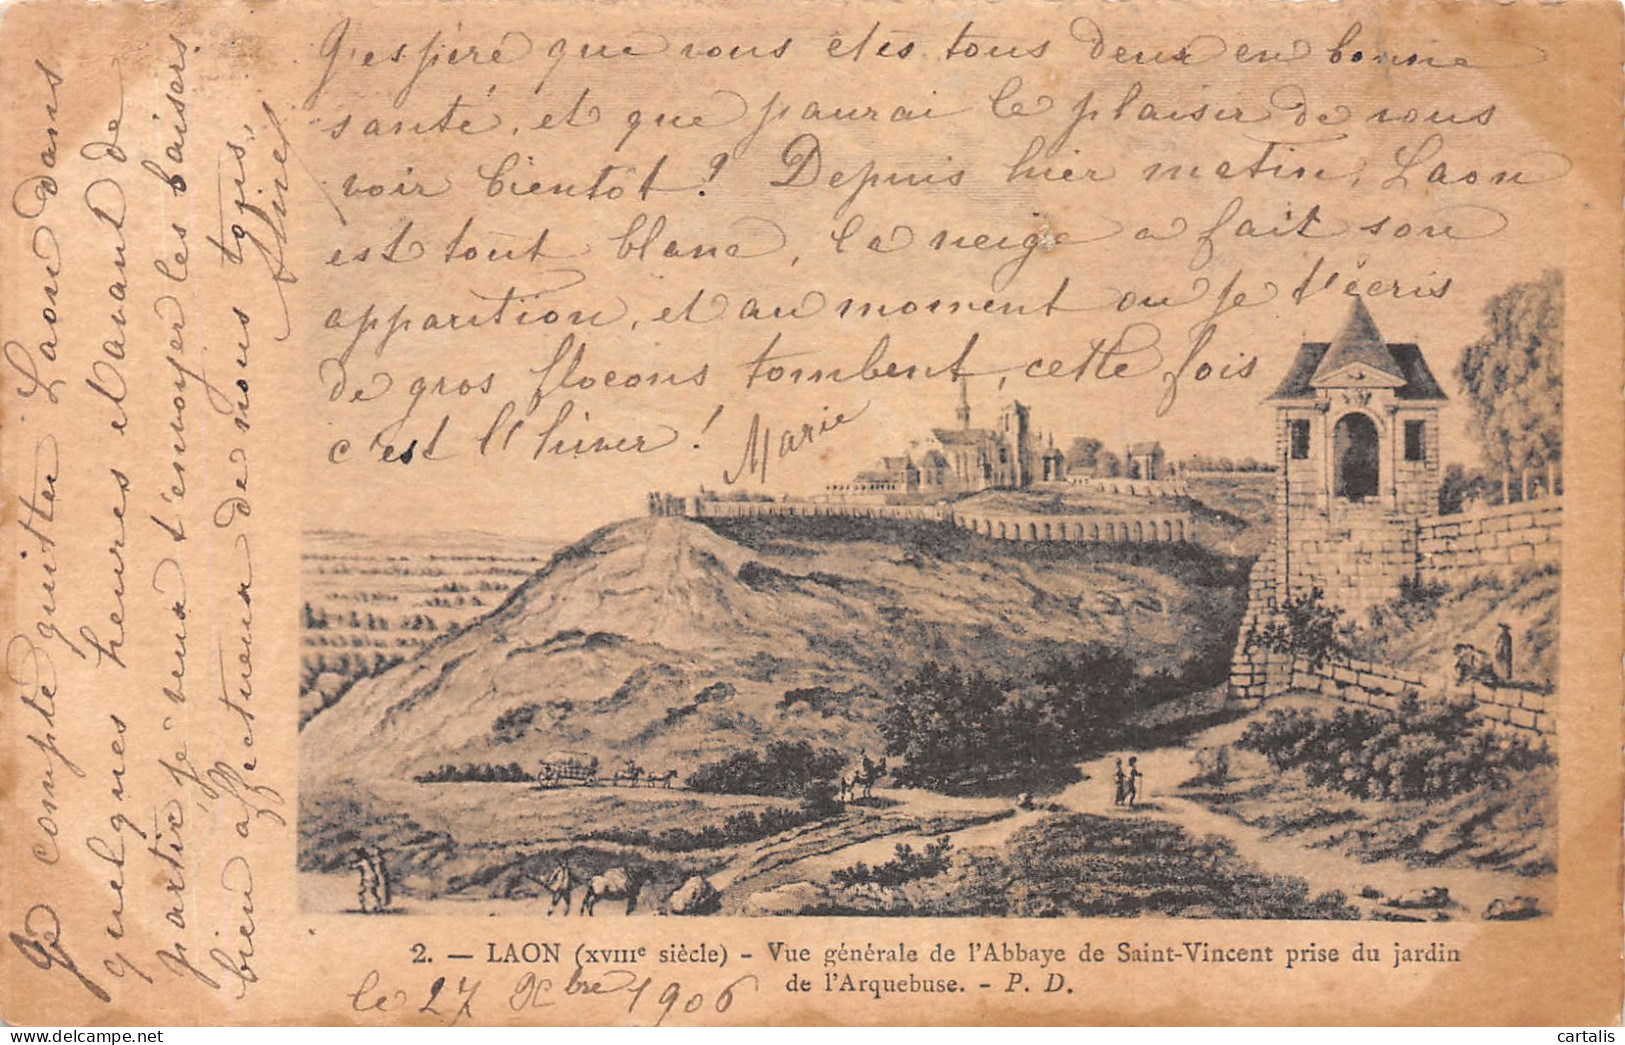 J'espère que vous etes tous deux en bonne
santé, et que j'aurai le plaisir de vous
voir bientôt ! Depuis hier matin, Laon
est tout blanc, la neige a fait son
apparition, et au moment ou je t'écris
de gros flocons tombent, cette fois
c'est l'hiver ! Marie
Je compte quitter Laon dans
quelques heures et avant de
partir je veux t'envoyer les baisers
bien affectueux de nous tous,
2. — LAON (XVIIIe siècle) - Vue générale de l'Abbaye de Saint-Vincent prise du jardin
de l'Arquebuse. - P. D.
le 27 Xbre 1906
cartalis